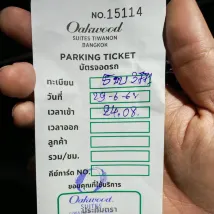 NO.15114
Oakwood
SUITES TIWANON
BANGKOK
PARKING TICKET
บัตรจอดรถ
ทะเบียน
วันที่ 29-6-62
เวลาเข้า 24.08.
เวลาออก
ลูกค้า
รวม/ชม.
คีย์การ์ด NO.
ขอบคุณที่ใช้บริการ
Oakwood
SUITES
ประทับตรา